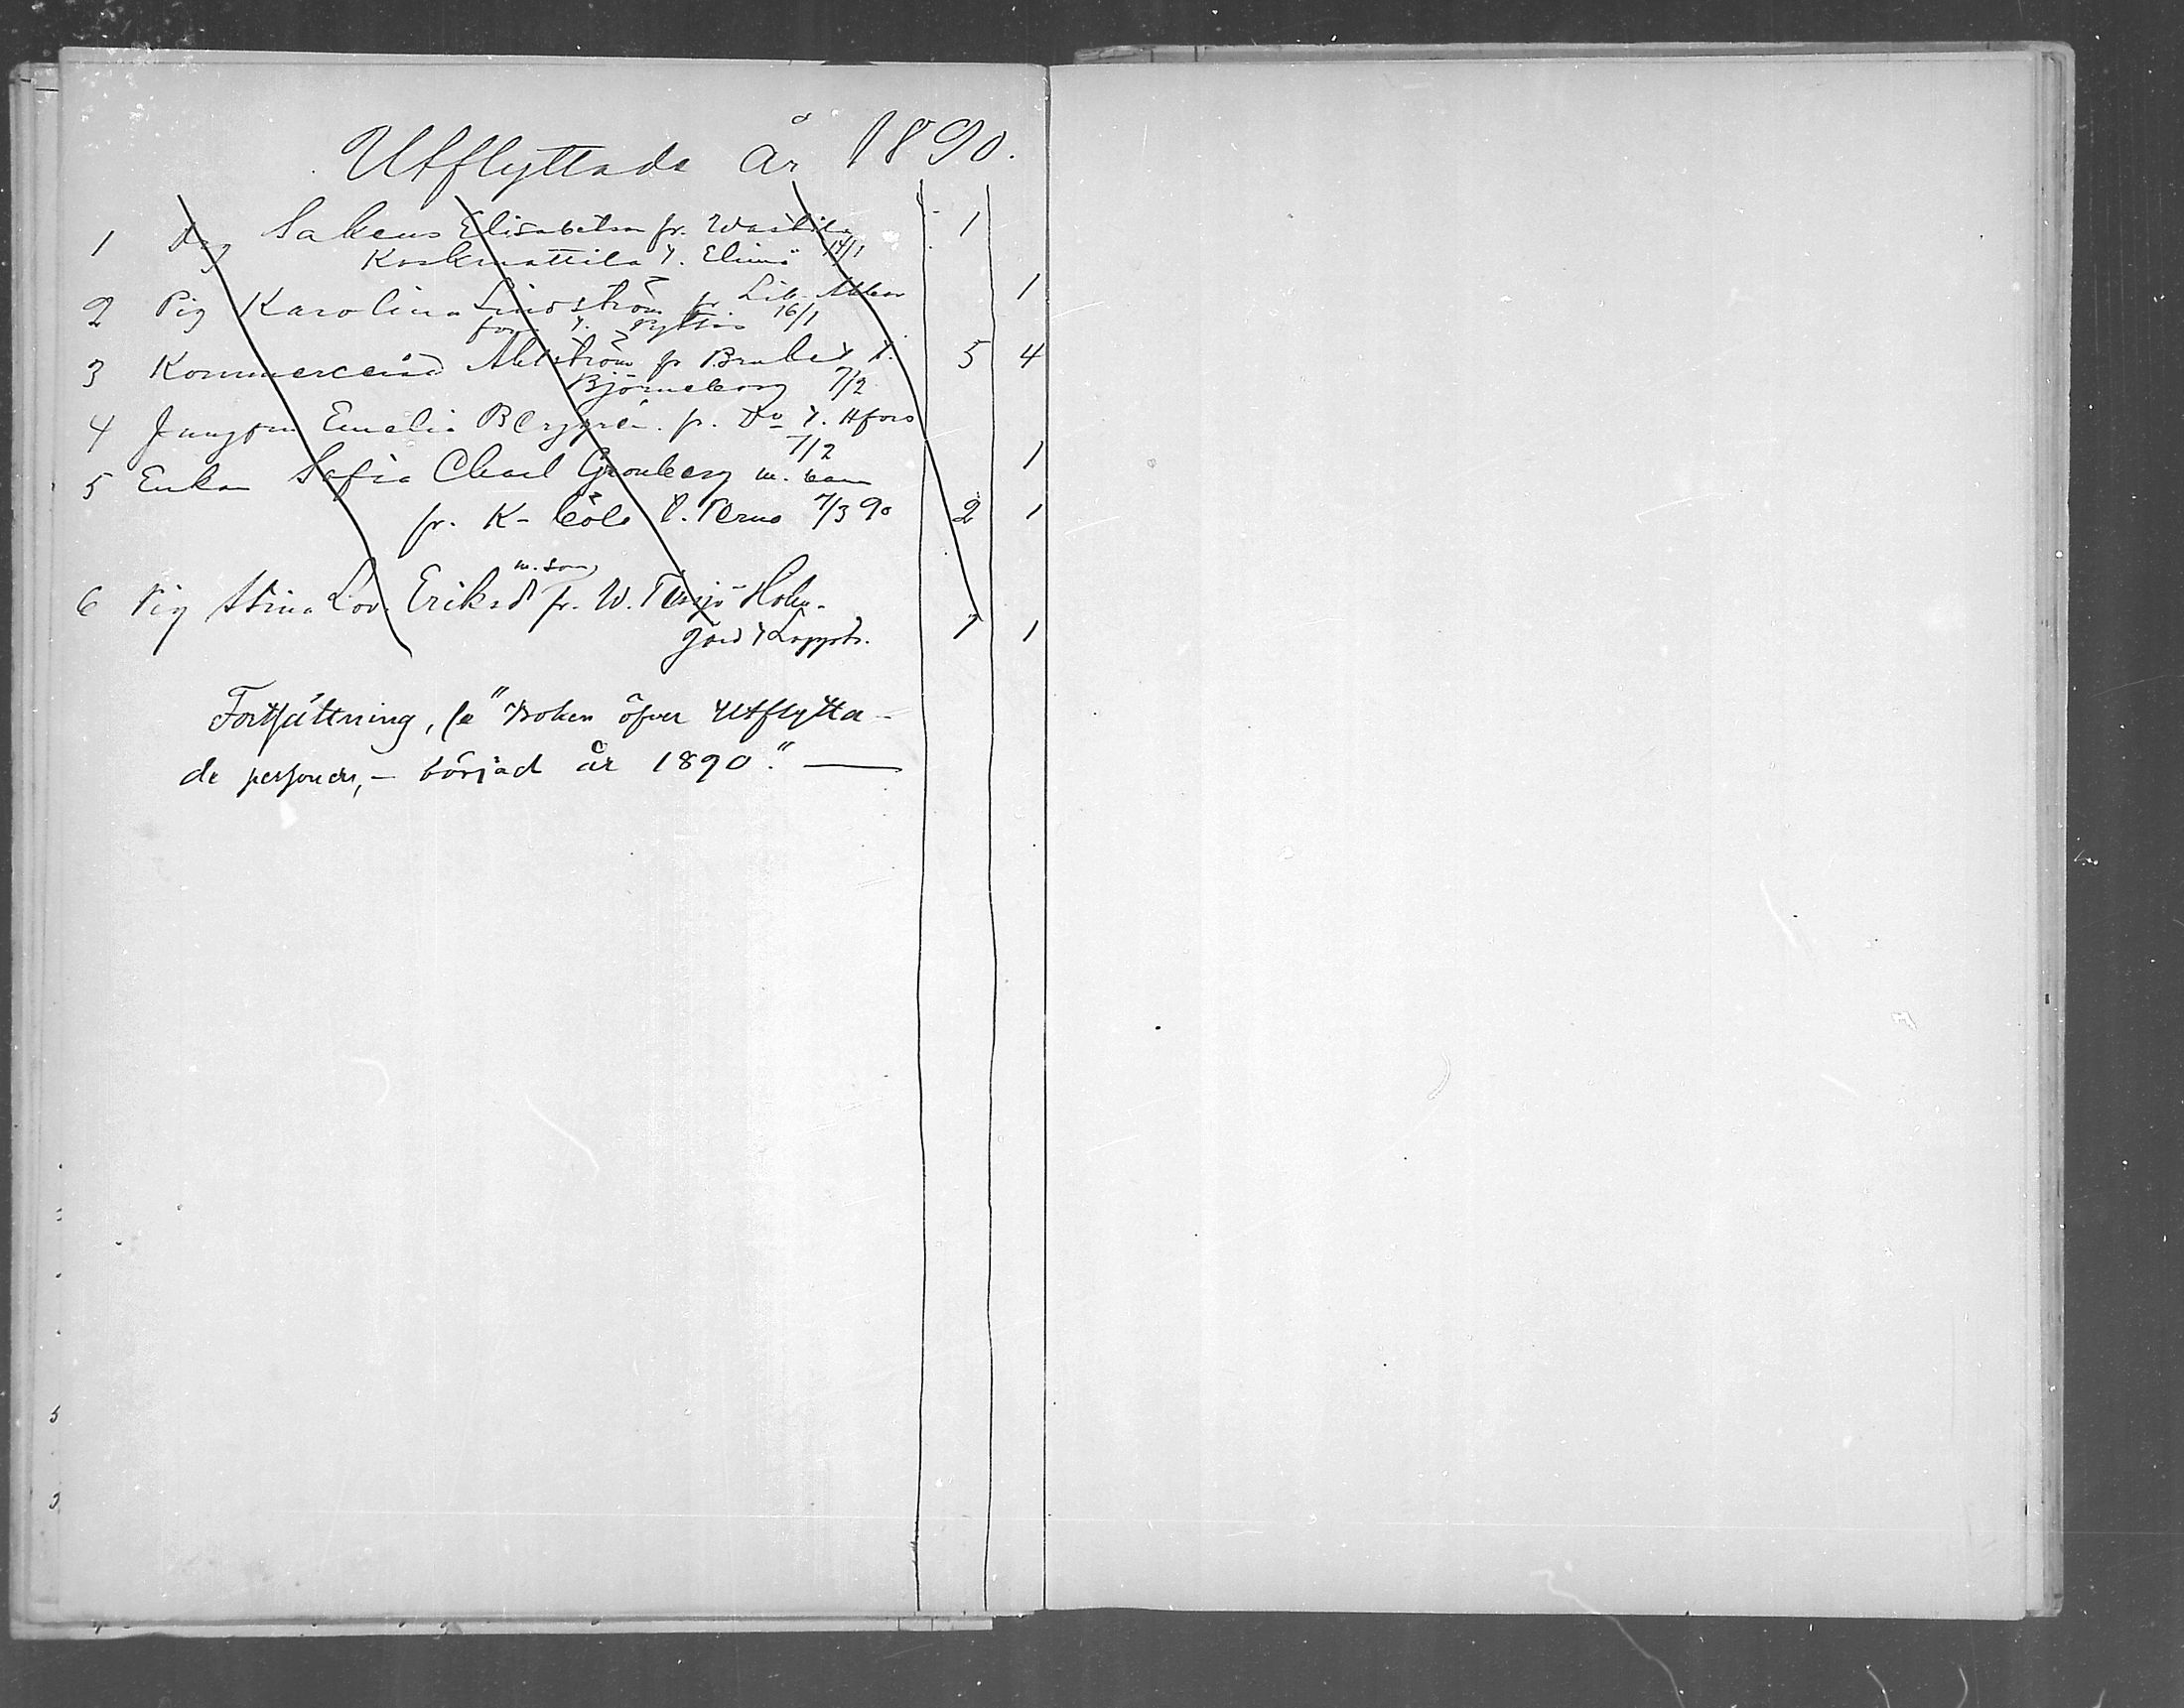 Utflyttade år 1890.
1 Drg Sakeus Elisabetson fr. Wastila 1
Koskmattila t. Elimä 14/1
2 Pig Karolina Lindström fr Lib. Abbor 1
fors t. Pyttis 16/1
3 Kommerceråd Ahlström fr t. 5 4
Björneborg 7/2
4 Jungfru Emelia Berggrén fr. Do t. Hfors
7/2 1
5 Enkan Sofia Gronberg m. barn
fr. K- böle t. Perno 7/3 90 2 1
m. son
6 Pig Stina Lov. Eriksd fr. W. Tessjö Holm-
gård t Lappstr. 1 1
Fortsättning, se "Boken öfver Utflytta-
de personer, - börjad år 1890."